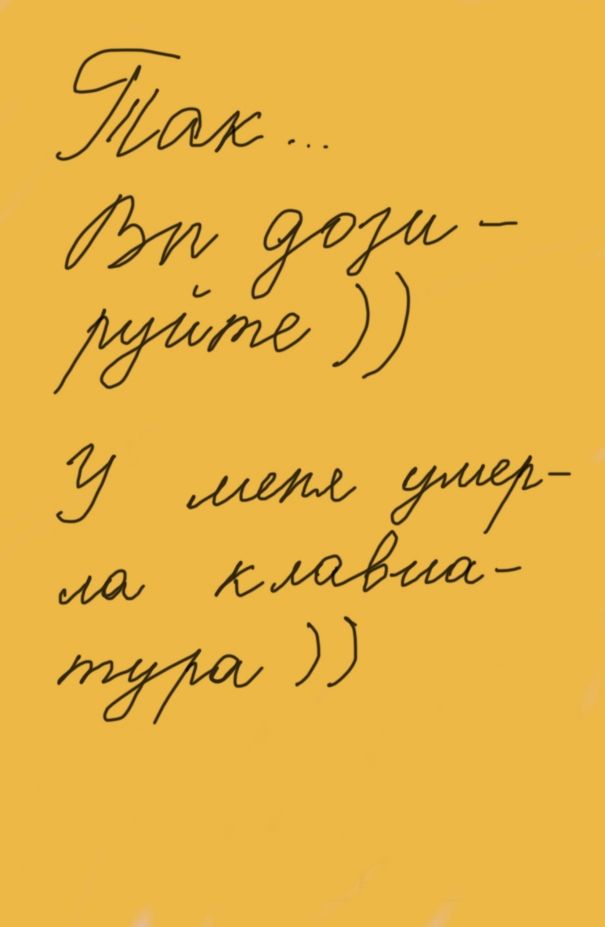 Так...
Вы дози-
руйте))
У меня умер-
ла клавиа-
тура))